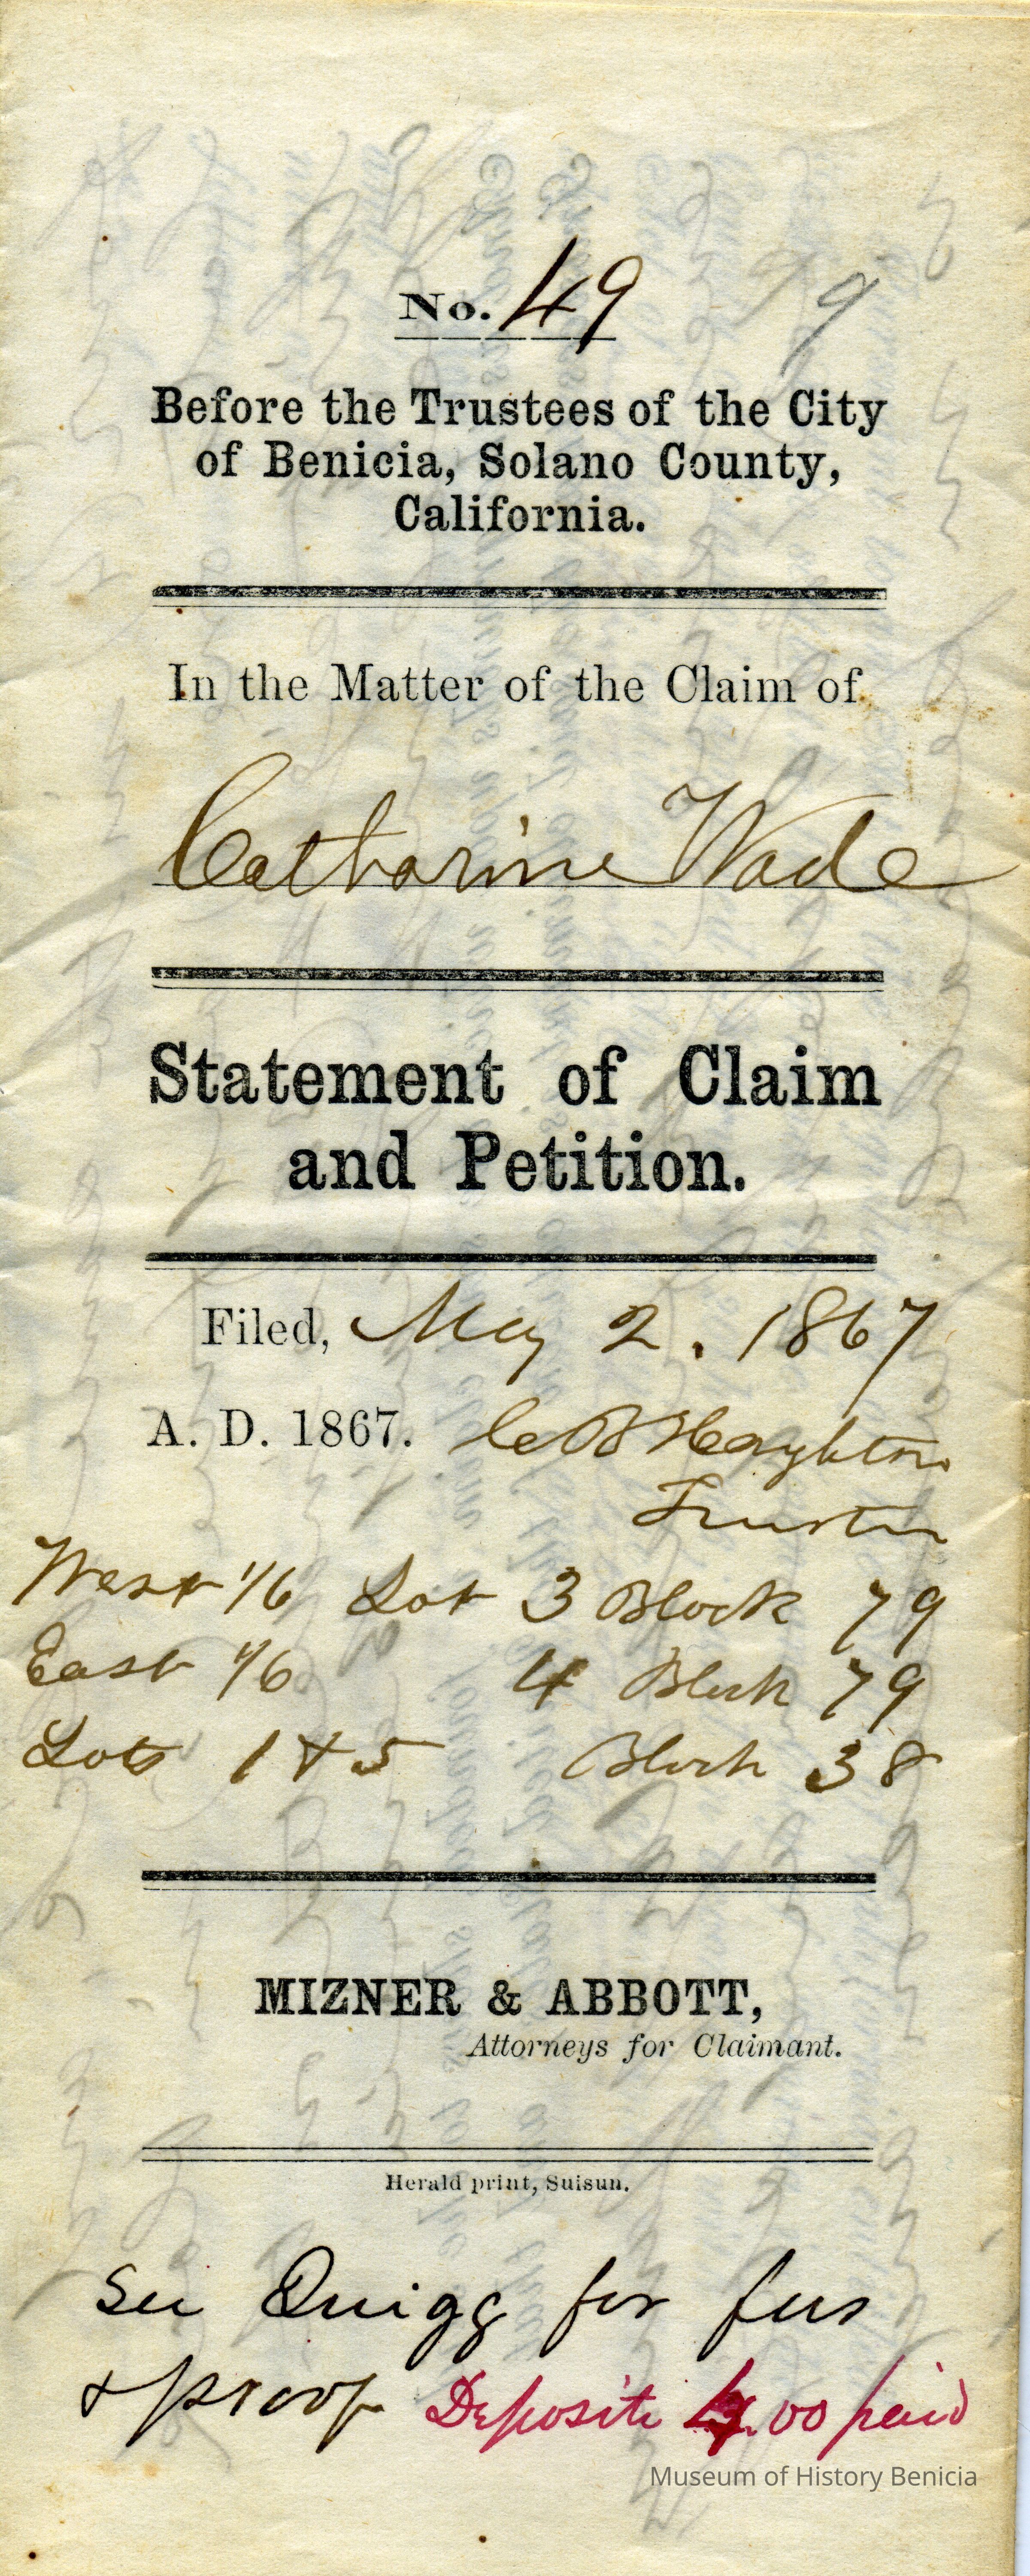 No. 49 9
Before the Trustees of the City
of Benicia, Solano County,
California.
In the Matter of the Claim of
Catharine Wade
Statement of Claim
and Petition.
Filed, May 2. 1867
A. D. 1867. C B Houghton
Trustee
West 1/6 Lot 3 Block 79
East 1/6 4 Block 79
Lots 1 & 5 Block 38
MIZNER & ABBOTT,
Attorneys for Claimant.
Herald print, Suisun.
See Quigg for fees
& proof Deposite 4.00 paid
Museum of History Benicia